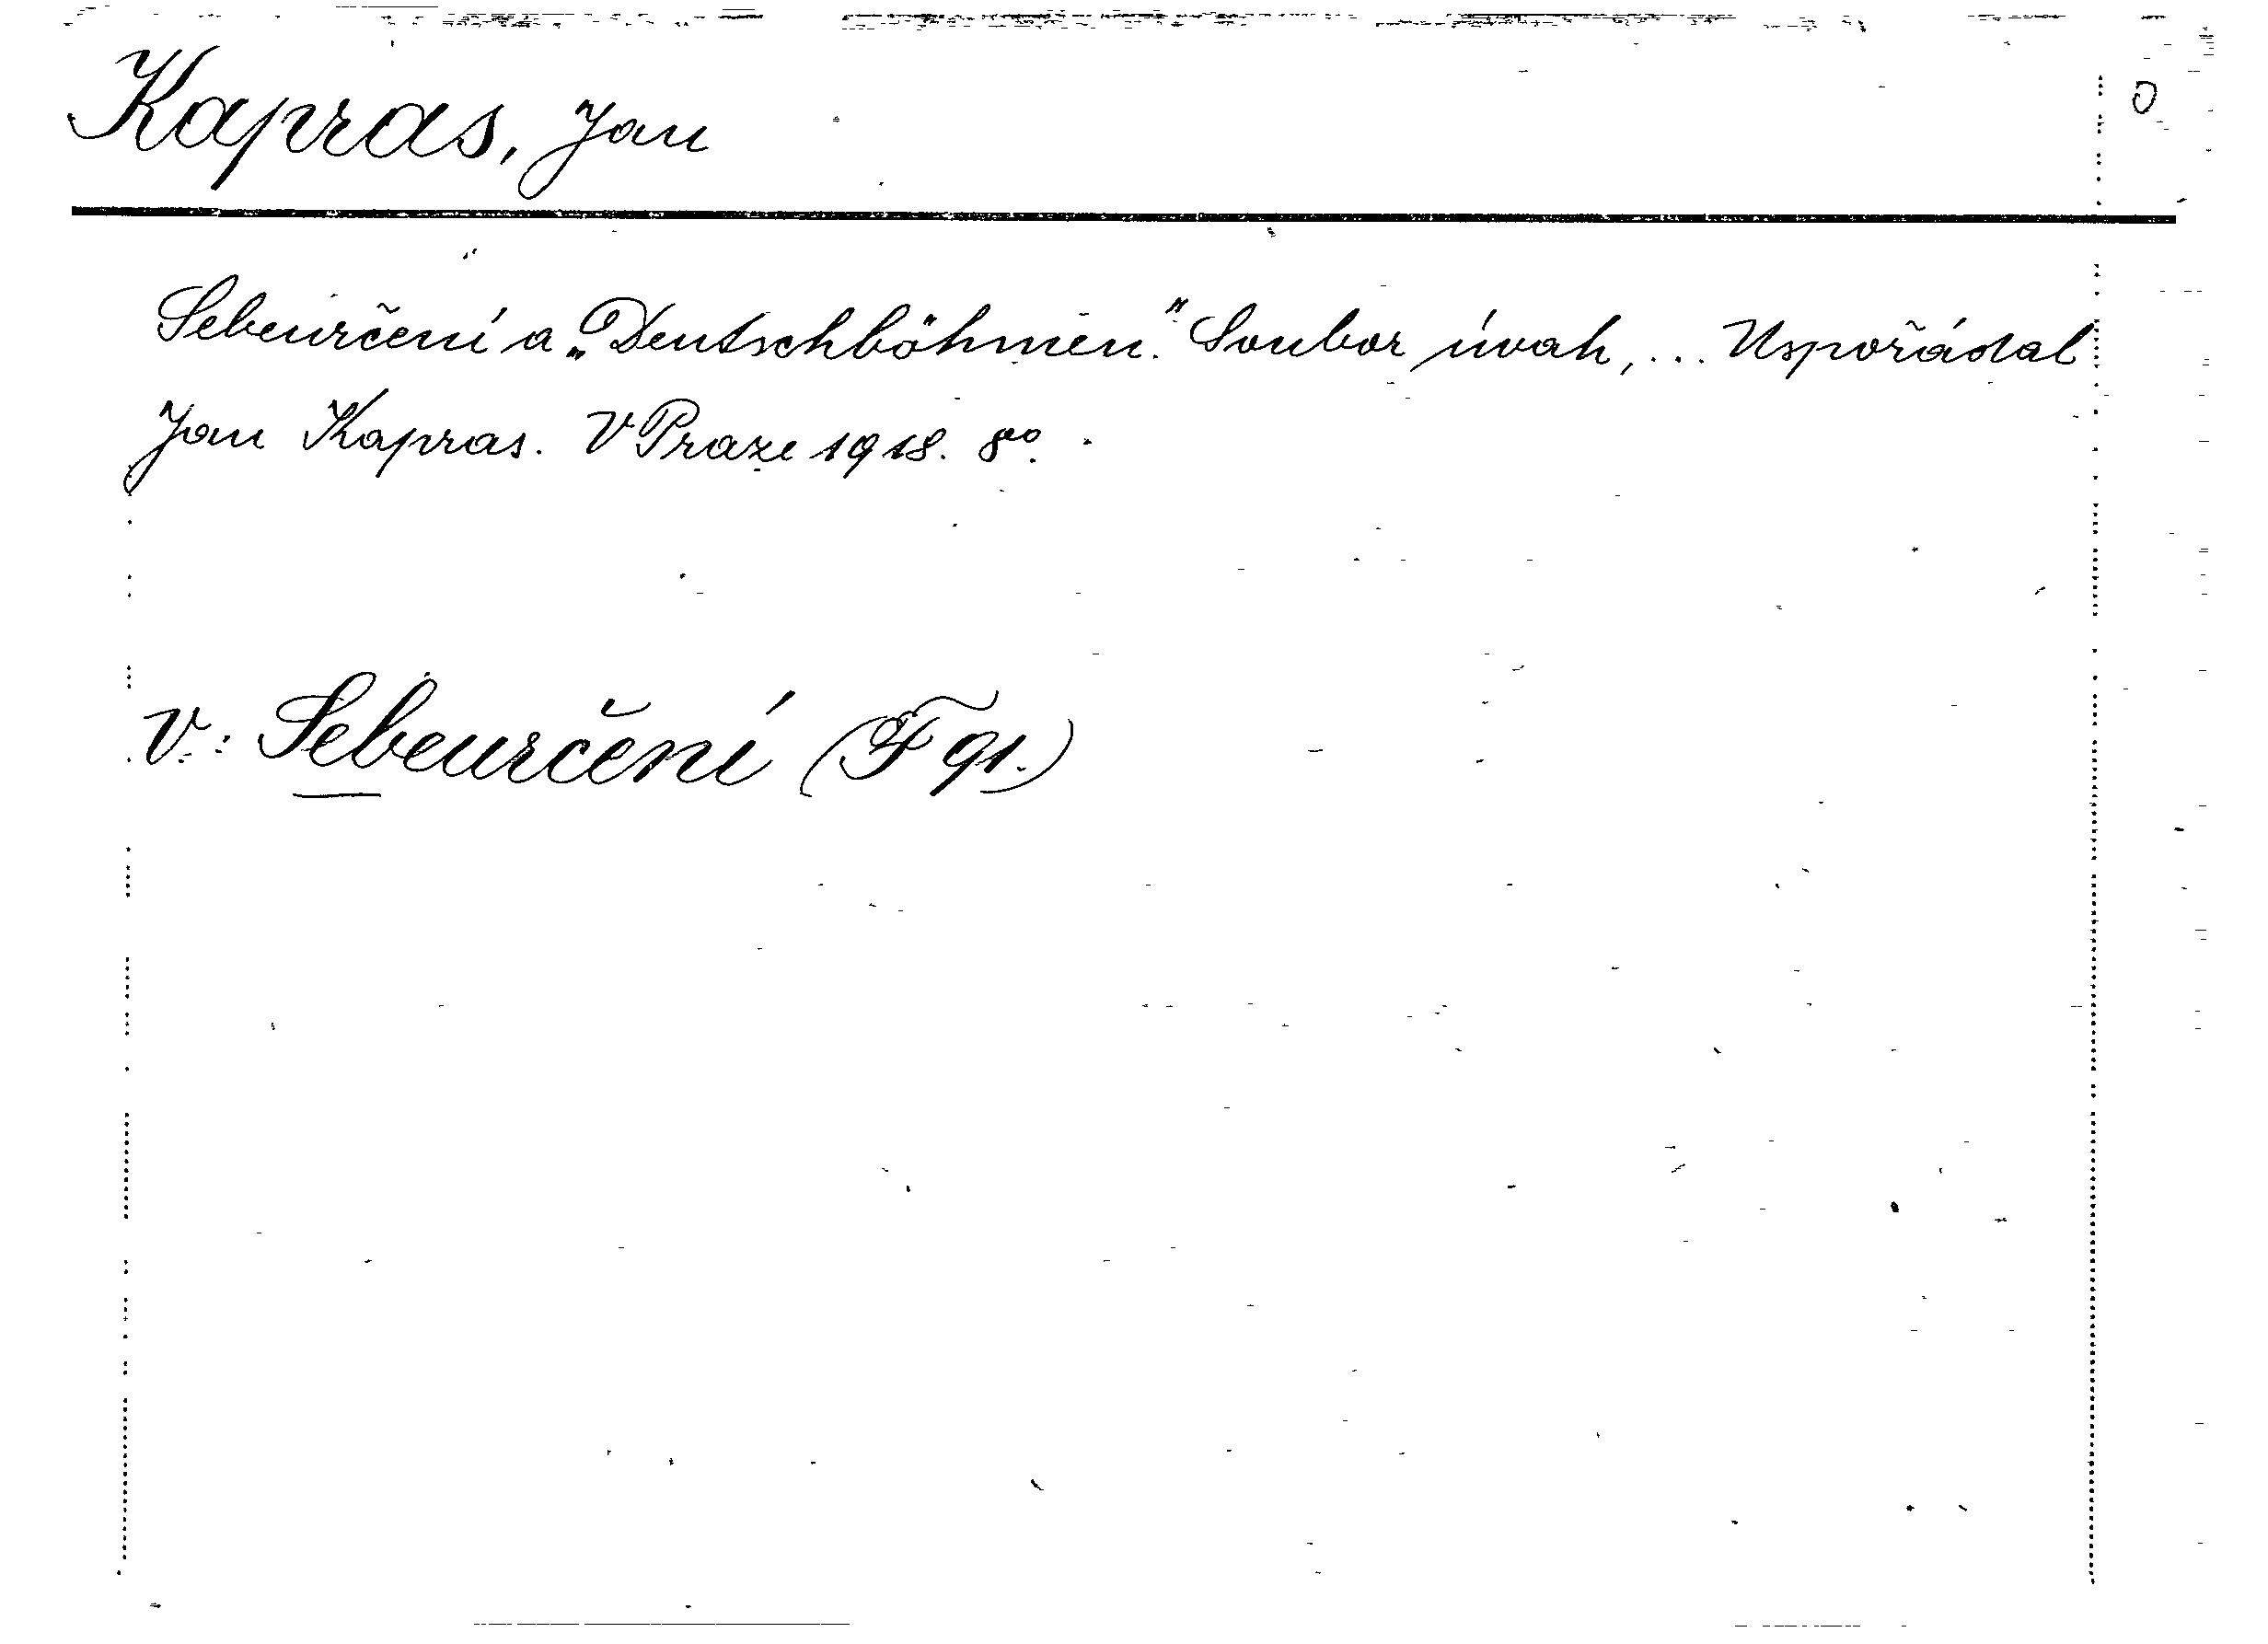 Kapras, Jan
O
Sebeurčení a „Deutschböhmen." Soubor úvah, ... Uspořádal
Jan Kapras. V Praze 1918. 8o.
V.: Sebeurčení (F 91.)